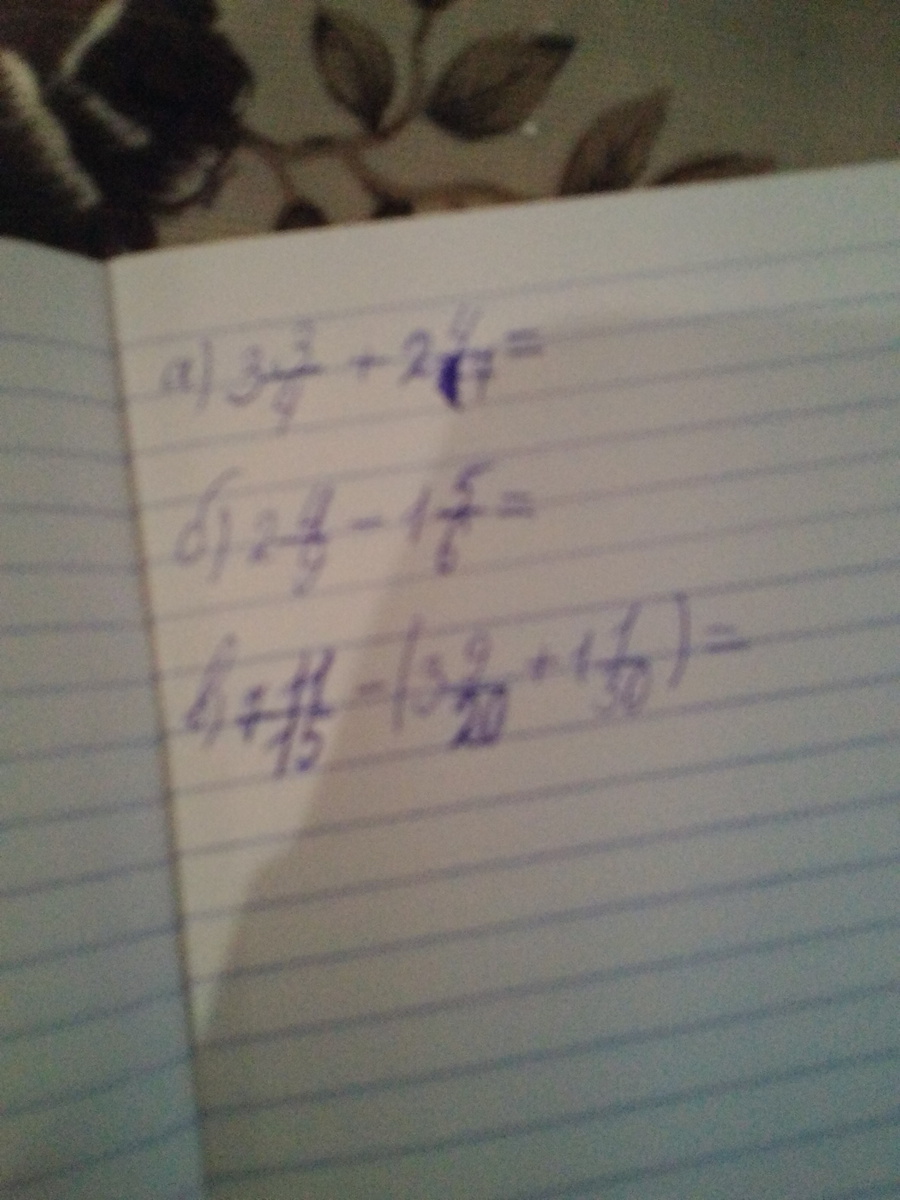 а) 3 3/4 + 2 4/7 =
б) 2 4/9 - 1 5/6 =
в) 7 11/15 - (3 9/20 + 1 1/30) =